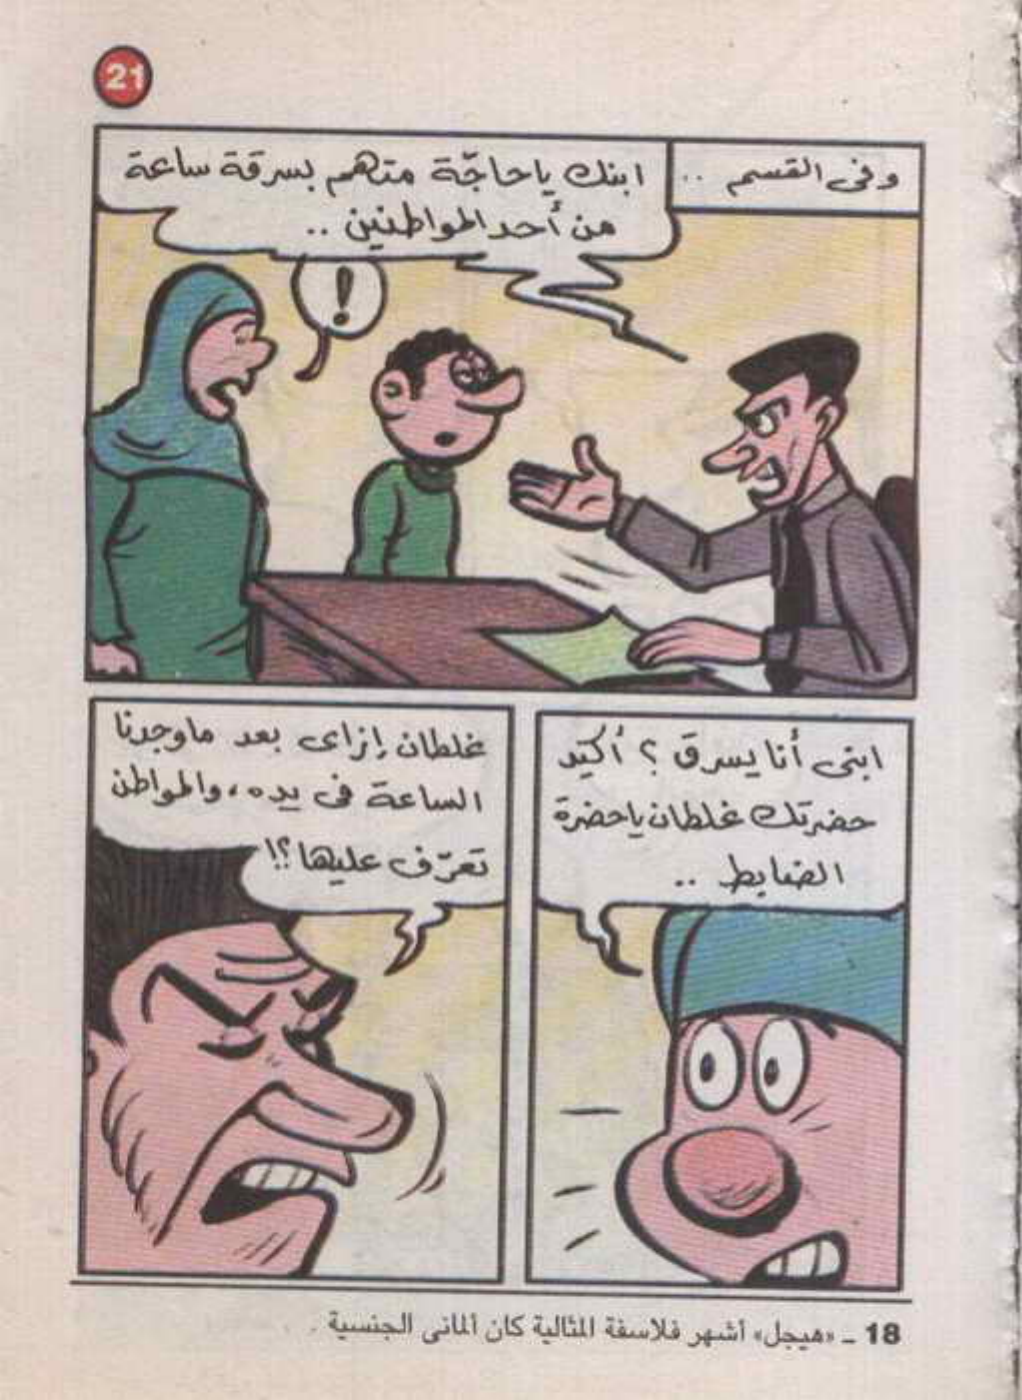 21
وفى القسم ..
ابنك ياحاجّة متهم بسرقة ساعة
من أحد المواطنين ..
!
ابنى أنا يسرق ؟ أكيد
حضرتك غلطان ياحضرة
الضابط ..
غلطان إزاى بعد ماوجدنا
الساعة فى يده، والمواطن
تعرّف عليها؟!
18 ـ «هيجل» أشهر فلاسفة المثالية كان ألمانى الجنسية .